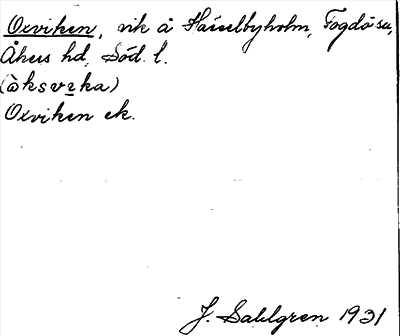 Oxviken, vik å Hässelbyholm, Fogdö sn,
Åkers hd, Söd. l.
(òksvıka)
Oxviken ek.
J. Sahlgren 1931